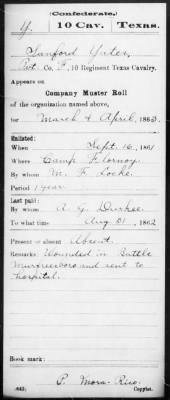 (Confederate.)
Y | 10 Cav. | Texas.
Sanford Yates
Pvt. Co. F, 10 Regiment Texas Cavalry.
Appears on
Company Muster Roll
of the organization named above,
for March & April, 1863.
Enlisted:
When Sept. 16, 1861
Where Camp Flournoy
By whom M. F. Locke
Period 1 year
Last paid:
By whom A. G. Durkee
To what time Aug 31, 1862
Present or absent Absent.
Remarks: Wounded in Battle
Murfreesboro and sent to
hospital.
Book mark:
P. Mora-Rico.
(642) Copyist.